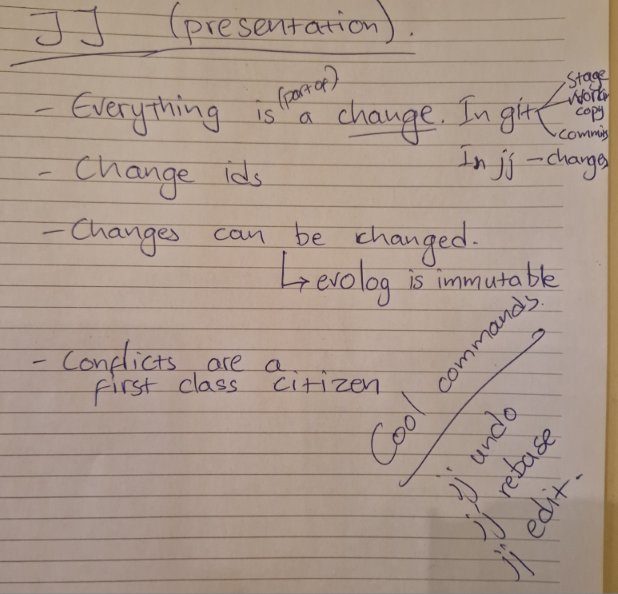 JJ (presentation).
- Everything is (part of) a change. In git
Stage
Workin
copy
commits
In jj - changes
- Change ids
- Changes can be changed.
↳ evolog is immutable
- Conflicts are a
first class citizen
Cool commands.
jj undo
jj rebase
jj edit.